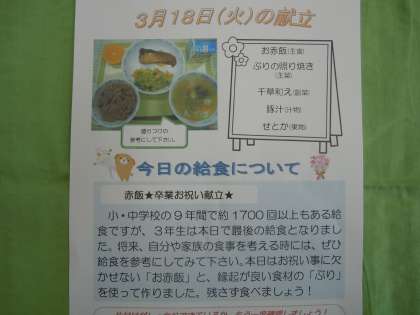 3月18日(火)の献立
お赤飯(主食)
ぶりの照り焼き
(主菜)
千草和え(副菜)
豚汁(汁物)
せとか(果物)
盛りつけの
参考にして下さい。
今日の給食について
赤飯★卒業お祝い献立★
小・中学校の9年間で約1700回以上もある給
食ですが、3年生は本日で最後の給食となりまし
た。将来、自分や家族の食事を考える時には、ぜひ
給食を参考にしてみて下さい。本日はお祝い事に欠
かせない「お赤飯」と、縁起が良い食材の「ぶり」
を使って作りました。残さず食べましょう!